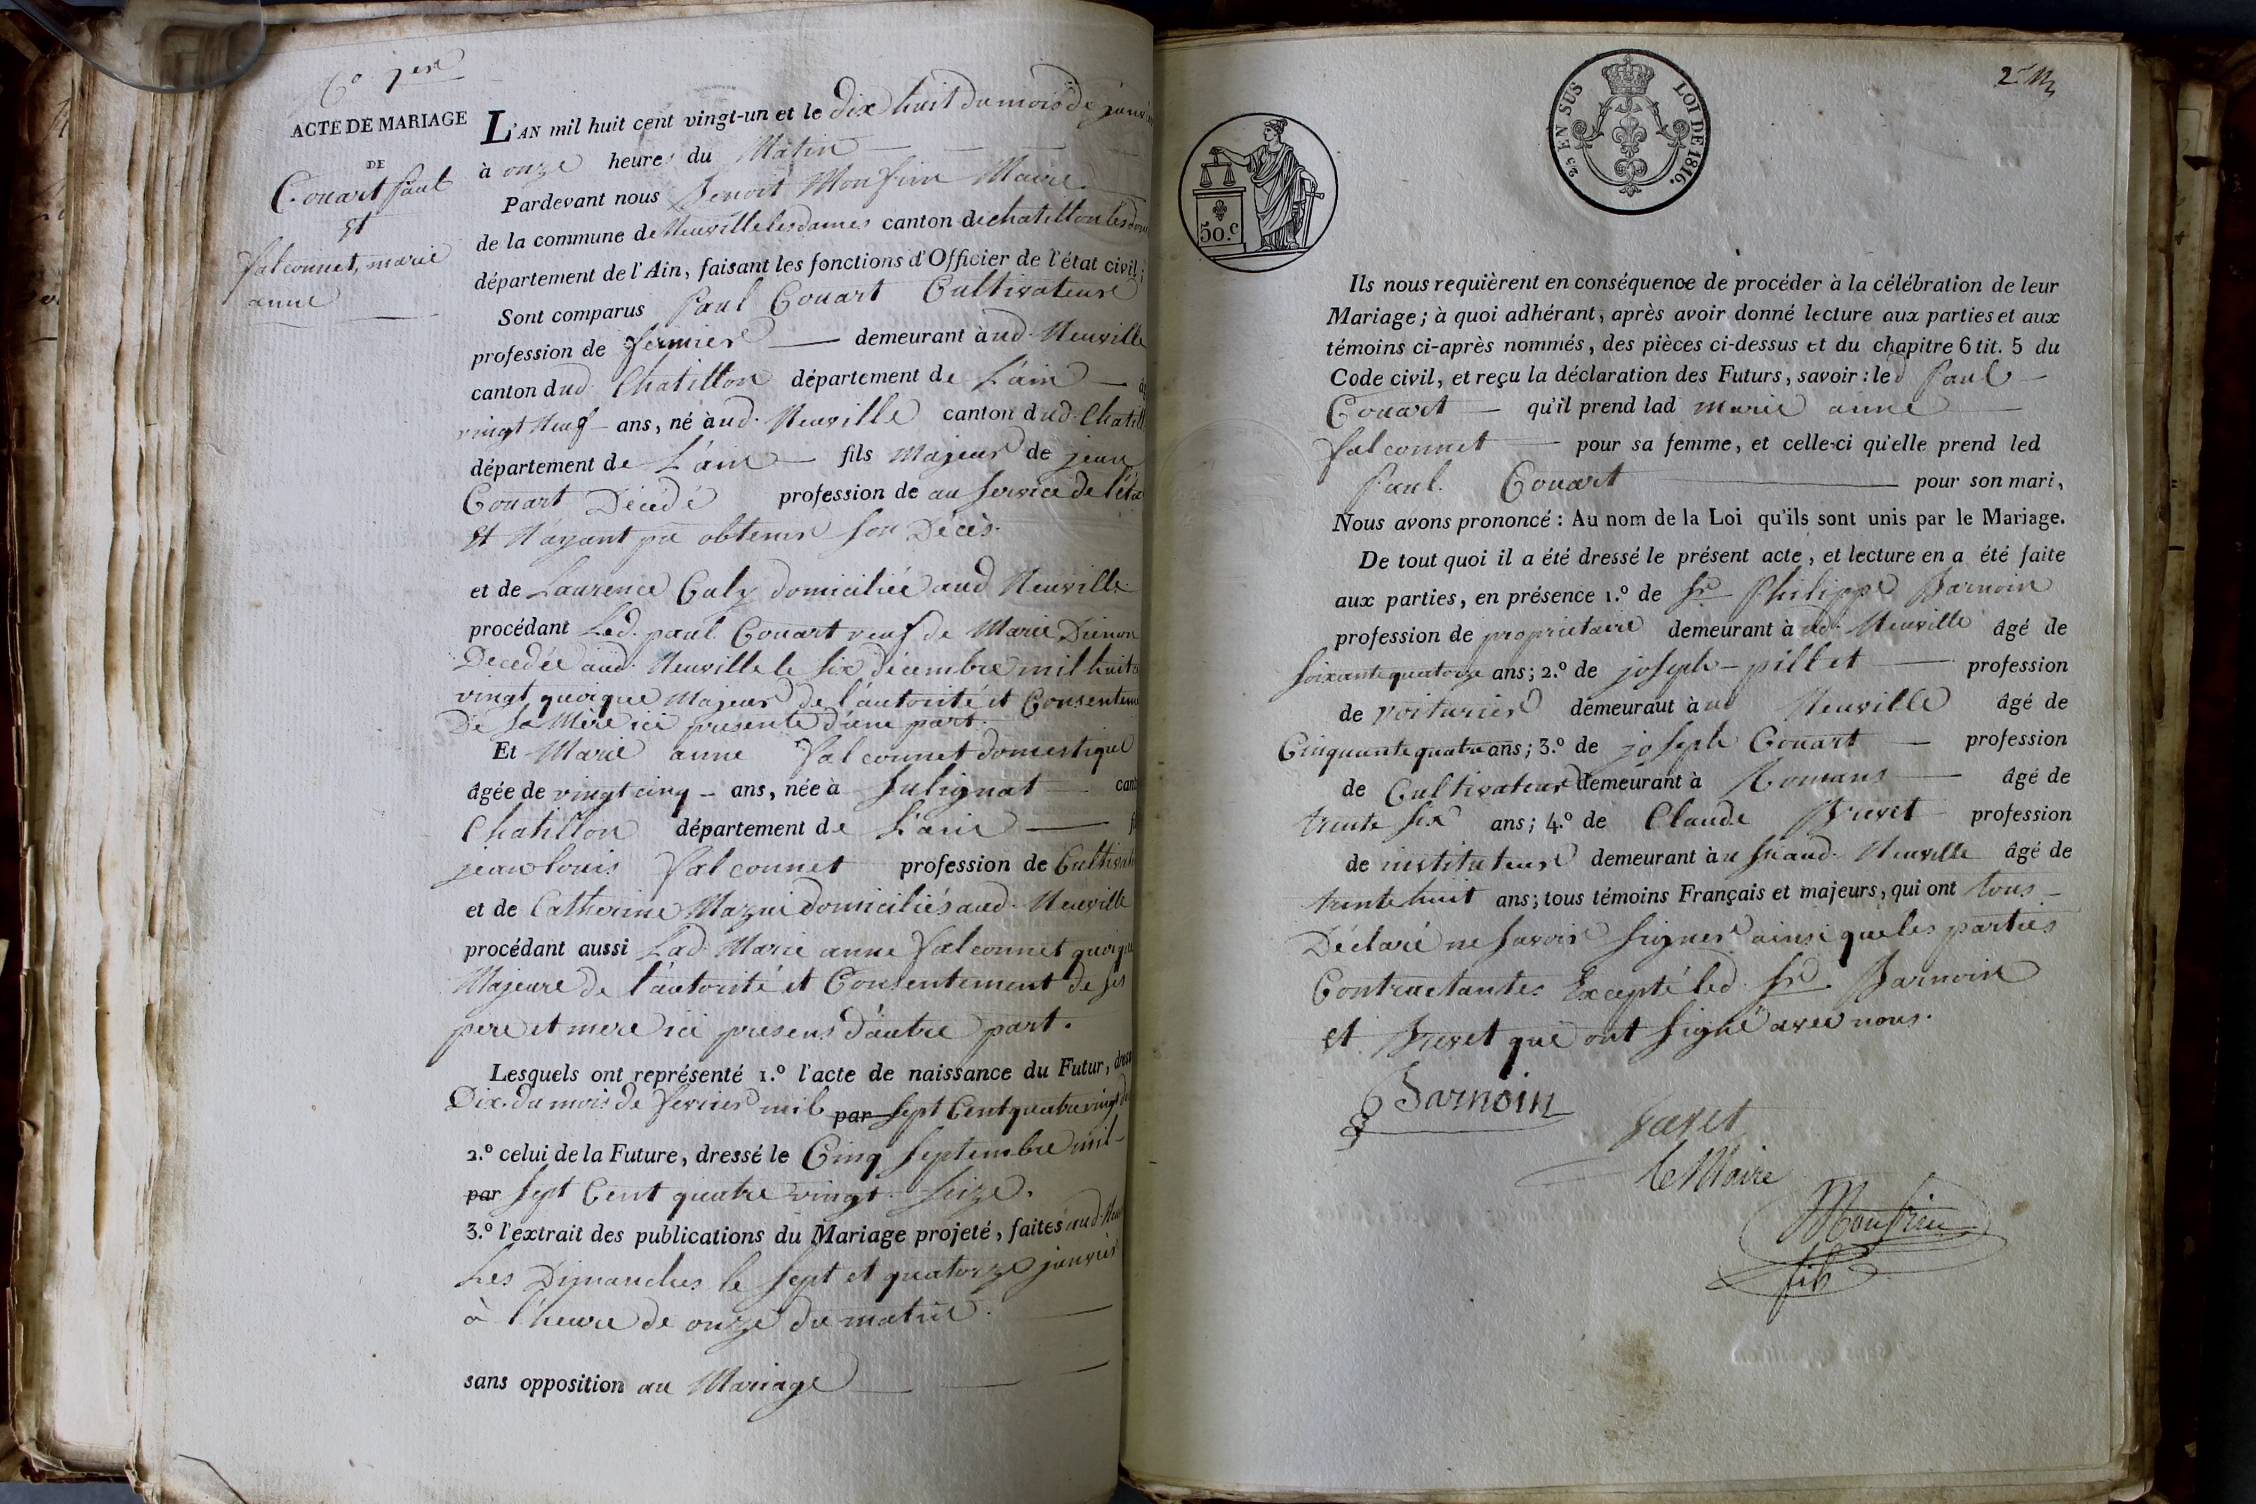 C.o 1ere
ACTE DE MARIAGE
DE
Couart Paul
Et
falconnet, marie
anne
L'AN mil huit cent vingt-un et le dix huit du mois de janvier
à onze heures du Matin
Pardevant nous Benoit Monfrin Maire
de la commune de Neuville les dames canton de chatillon les dom
département de l'Ain, faisant les fonctions d'Officier de l'état civil;
Sont comparus Paul Couart Cultivateur
profession de fermier demeurant à ud. Neuville
canton dud. Chatillon département de L'ain âg
vingt Neuf ans, né à ud. Neuville canton dud. Chatill
département de L'ain fils Majeur de jean
Couart Décédé profession de au Service de l'éta
Et N'ayant pu obtenir son Décès.
et de Laurence Galy domiciliée aud Neuville
procédant Led. paul Couart veuf de Marie Dienon
Decedée aud. Neuville le Six décembre mil huit c
vingt quoique Majeur de l'autorité et Consenteme
De Sa Mère ici presente d'une part.
Et Marie anne falconnet domestique
âgée de vingt cinq ans, née à Sulignat cant
Chatillon département de L'ain fi
jean louis falconnet profession de Cultivat
et de Catherine Mazui domiciliés aud. Neuville
procédant aussi Lad. Marie anne falconnet quoiqu
Majeure de l'autorité et Consentement de ses
pere et mere ici presens d'autre part.
Lesquels ont représenté 1.º l'acte de naissance du Futur, dress
Dix du mois de fevrier mil par Sept Cent quatre vingt d
2.º celui de la Future, dressé le Cinq Septembre mil
par Sept Cent quatre vingt Seize.
3.º l'extrait des publications du Mariage projeté, faites aud. Neu
Les Dimanches le Sept et quatorze janvier
à l'heure de onze du matin.
sans opposition au Mariage
50.c
2/5 EN SUS LOI DE 1816.
Ils nous requièrent en conséquence de procéder à la célébration de leur
Mariage; à quoi adhérant, après avoir donné lecture aux parties et aux
témoins ci-après nommés, des pièces ci-dessus et du chapitre 6 tit. 5 du
Code civil, et reçu la déclaration des Futurs, savoir: led Paul
Couart qu'il prend lad marie anne
falconnet pour sa femme, et celle-ci qu'elle prend led
Paul. Couart pour son mari,
Nous avons prononcé: Au nom de la Loi qu'ils sont unis par le Mariage.
De tout quoi il a été dressé le présent acte, et lecture en a été faite
aux parties, en présence 1.º de Sr. Philippe Barnoin
profession de propriétaire demeurant à ud. Neuville âgé de
Soixante quatorze ans; 2.º de joseph pillet profession
de voiturier demeurant à ud Neuville âgé de
Cinquante quatre ans; 3.º de joseph Couart profession
de Cultivateur demeurant à Romans âgé de
trente six ans; 4.º de Claude profession
de instituteur demeurant à aud. Neuville âgé de
trente huit ans; tous témoins Français et majeurs, qui ont tous
Déclaré ne Savoir Signer ainsi que les parties
Contractantes Excepté led. Sr. Barnoin
et que ont Signé avec nous.
Barnoin
le Maire
Monfrin
fils